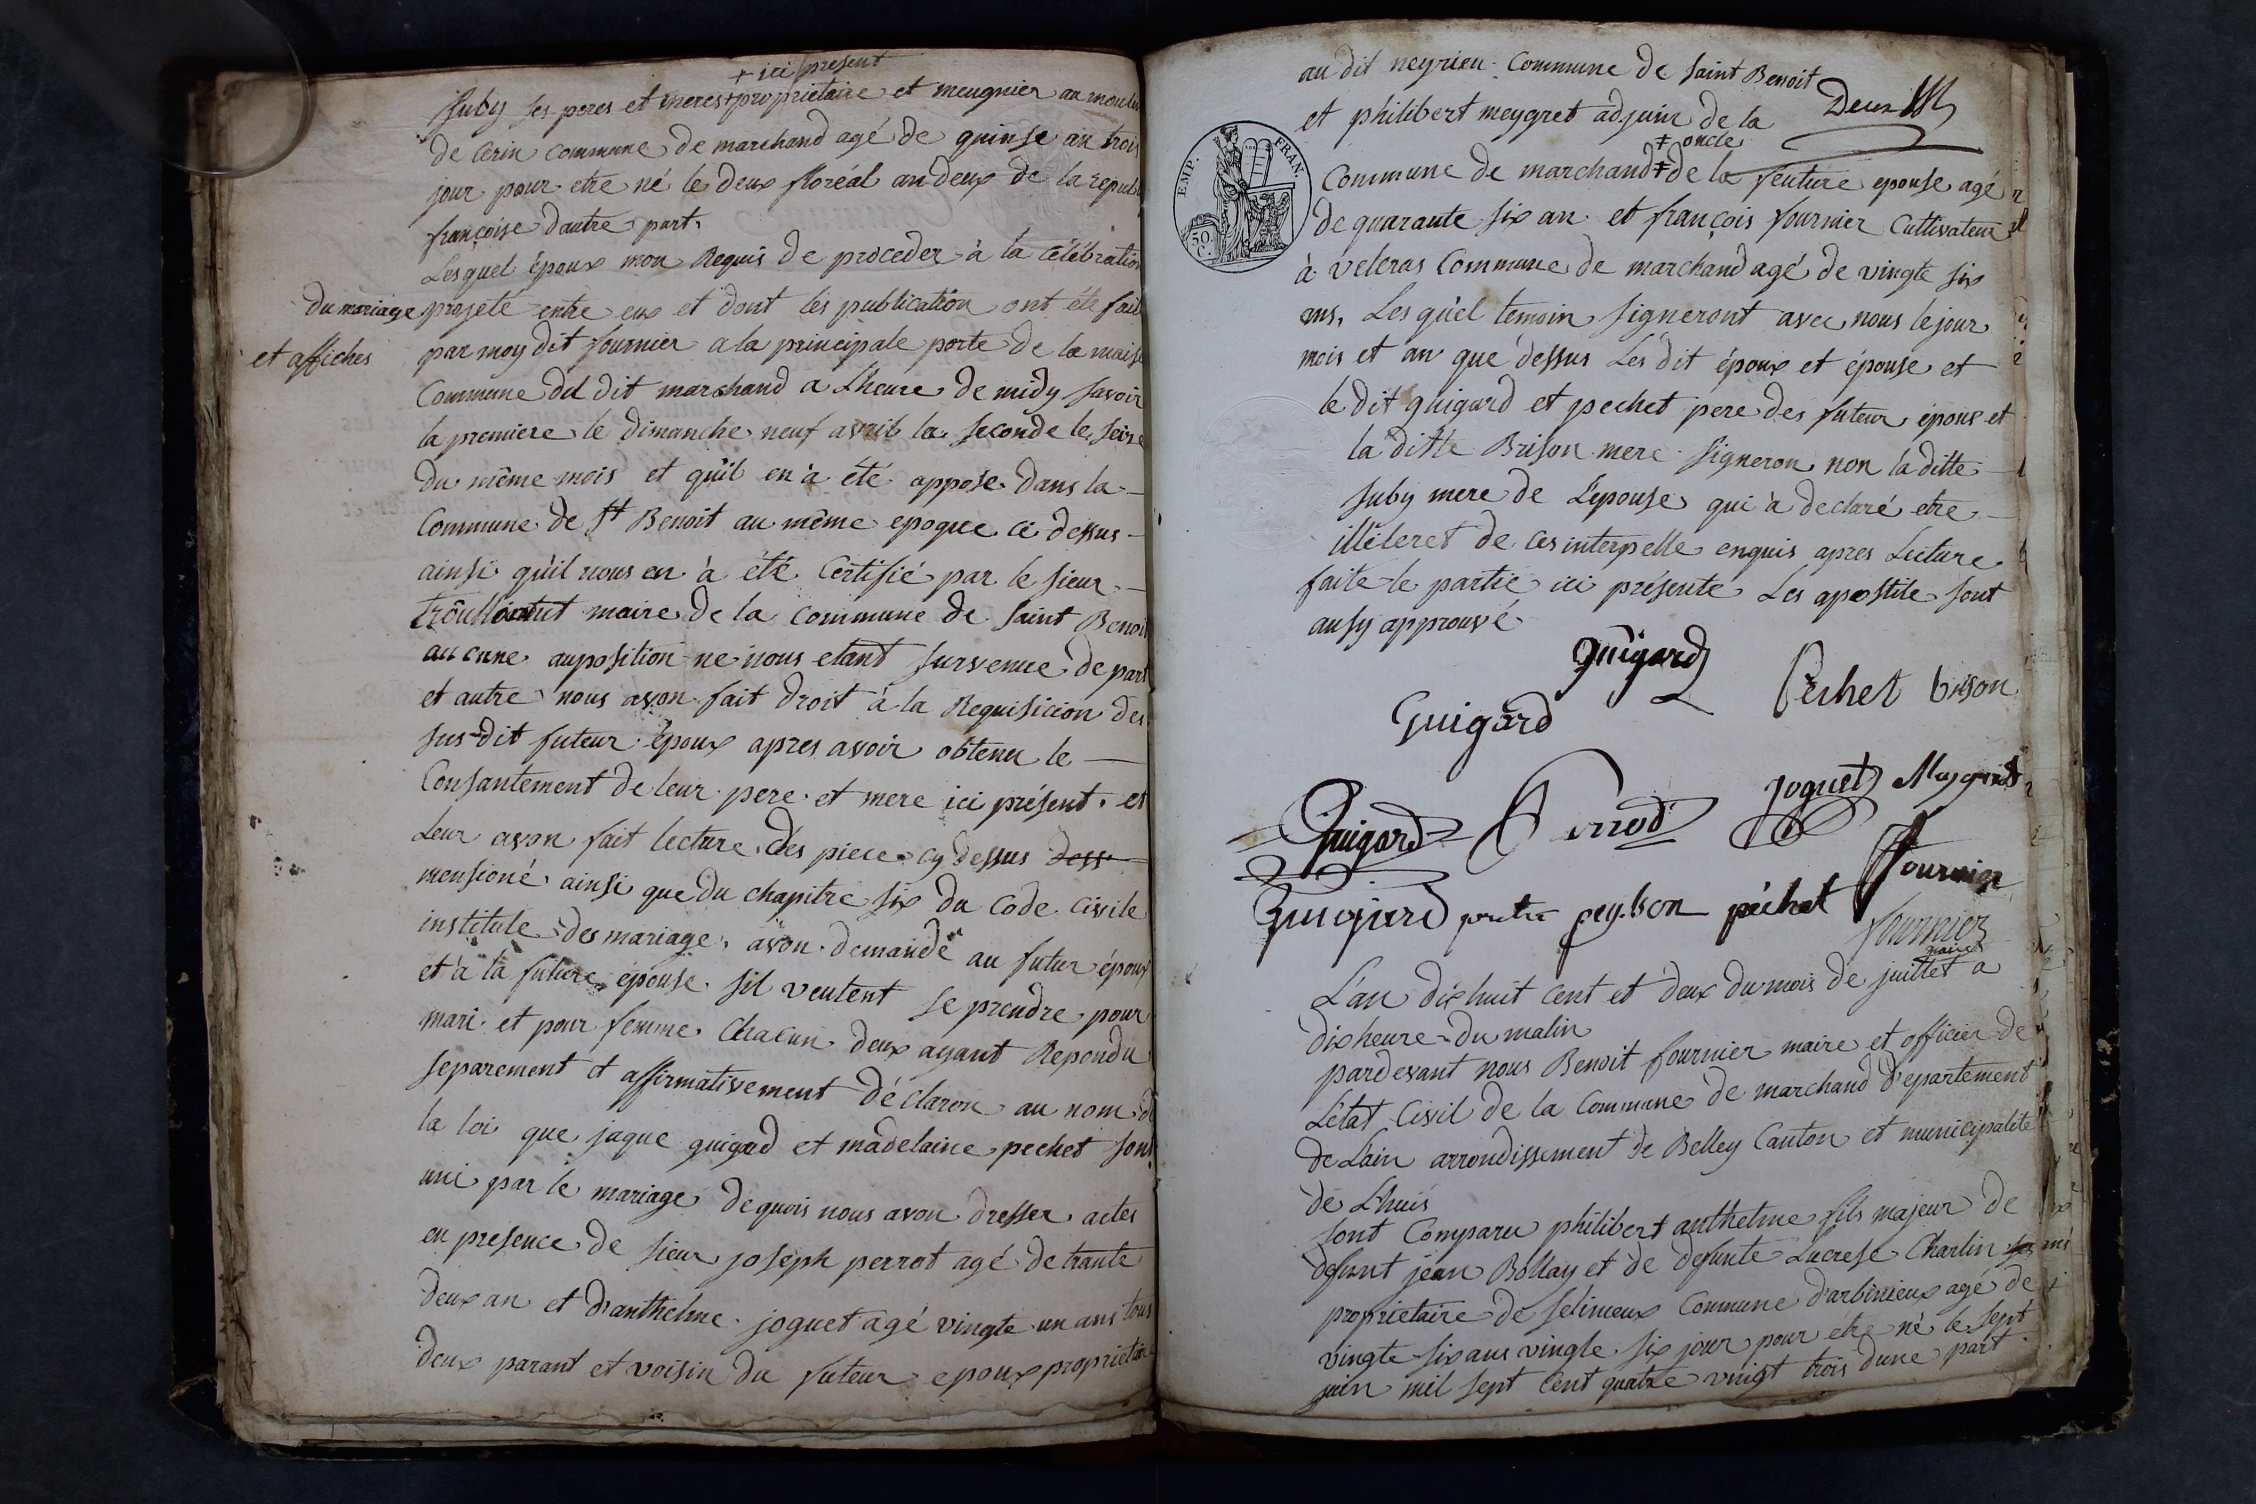 + ici present
Suby ses peres et meres + proprietaire et meugnier au moulin
de Cerin commune de marchand agé de quinse an trois
jour pour etre né le deux floréal an deux de la republ
françoise dautre part.
Lesquel époux mon Requis de proceder à la célébration
du mariage projeté entre eux et dont les publication ont été fait
et affiches par moy dit fournier a la principale porte de la maiso
Commune du dit marchand a Lheure de midy savoir
la premiere le dimanche neuf avril la seconde le seize
du même mois et qu'il en à été apposé dans la
Commune de St Benoit au même epoque ci dessus
ainsi qu'il nous en à été Certifié par le sieur
maire de la commune de saint Benoit
aucune auposition ne nous etant survenue de part
et autre nous avon fait droit à la Requisicion des
sus-dit futeur époux apres avoir obtenu le
Consantement de leur pere et mere ici présent. et
Leur avon fait lecture des piece cy dessus dess
mensioné ainsi que du chapitre six du Code Civile
institule des mariage, avon demandé au futur époux
et à la future épouse sil veulent se prendre pour
mari et pour femme Chacun deux ayant Repondu
separement et affirmativement déclaron au nom de
la loi que jaque guigard et madelaine pechet sont
uni par le mariage de quois nous avon dresser actes
en presence de sieur joseph perrot agé de trante
deux an et d'anthelme joguet agé vingte un ans tous
deux parant et voisin du futeur epoux proprietaire
au dit neyrieu Commune de saint Benoit
et philibert meygret adjoint de la
+ oncle
Commune de marchand + de la feuture epouse agé
de quarante six an et françois fournier Cultivateur
à veleras Commune de marchand agé de vingte six
ans, Les quel temoin signeront avec nous le jour
mois et an que dessus Les dit époux et épouse et
le dit guigard et pechet pere des futeur époux et
la ditte Brison mere signeron non la ditte
suby mere de L'epouse qui à declaré etre
illeleret de ces interpelle enquis apres Lecture
faite le partie ici présente Les apostile sont
ausy approuvé
guigard
Guigard Pechet brison
Guigard Perrod joguet Meygret
Guigard peyson péchet ffournier
fournier
maire
L'an dix huit cent et deux du mois de juillet a
dix heure du matin
pardevant nous Benoit fournier maire et officier de
Létat Civil de la Commune de marchand département
de Lain arrondissement de Belley Canton et municipalité
de Lhuis
sont Comparu philibert anthelme fils majeur de
defunt jean Bollay et de defunte Lucrese Charlin
proprietaire de selimeux Commune d'arbinieux agé de
vingte six ans vingte six jour pour etre né le sept
juin mil sept Cent quatre vingt trois dune part
EMP. FRAN.
50 C.